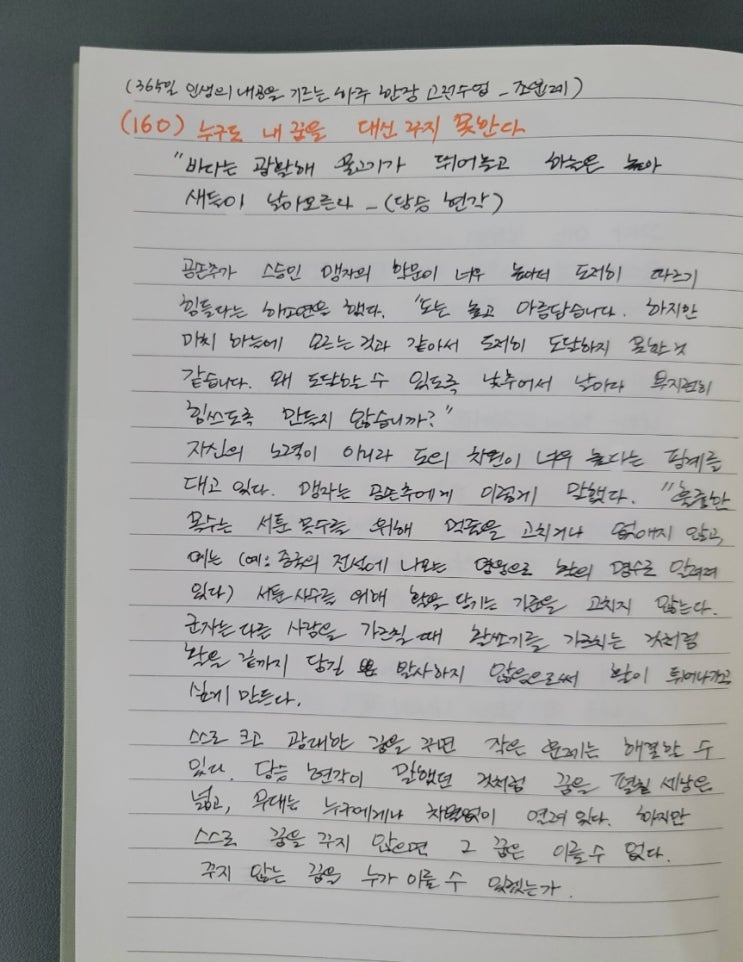 (365일 인생의 내공을 기르는 하루 한장 고전수업 - 조윤제)
(160) 누구도 내 꿈을 대신 꾸지 못한다
"바다는 광활해 물고기가 뛰어놀고 하늘은 높아
새들이 날아오른다 - (당승 현각)
공손추가 스승인 맹자의 학문이 너무 높아서 도저히 따르기
힘들다는 하소연을 했다. "도는 높고 아름답습니다. 하지만
마치 하늘에 오르는 것과 같아서 도저히 도달하지 못할 것
같습니다. 왜 도달할 수 있도록 낮추어서 날마다 부지런히
힘쓰도록 만들지 않습니까?"
자신의 노력이 아니라 도의 차원이 너무 높다는 핑계를
대고 있다. 맹자는 공손추에게 이렇게 말했다. "훌륭한
목수는 서툰 목수를 위해 먹줄을 고치거나 없애지 않고,
예는 (예: 중국의 전설에 나오는 영웅으로 활의 명수로 알려져
있다) 서툰 사수를 위해 활을 당기는 기준을 고치지 않는다.
군자는 다른 사람을 가르칠 때 활쏘기를 가르치는 것처럼
활을 끝까지 당길 뿐 발사하지 않음으로써 활이 튀어나가고
싶게 만든다.
스스로 크고 광대한 꿈을 꾸면 작은 문제는 해결할 수
있다. 당승 현각이 말했던 것처럼 꿈을 펼칠 세상은
넓고, 무대는 누구에게나 차별없이 열려 있다. 하지만
스스로 꿈을 꾸지 않으면 그 꿈은 이룰 수 없다.
꾸지 않는 꿈을 누가 이룰 수 있겠는가.